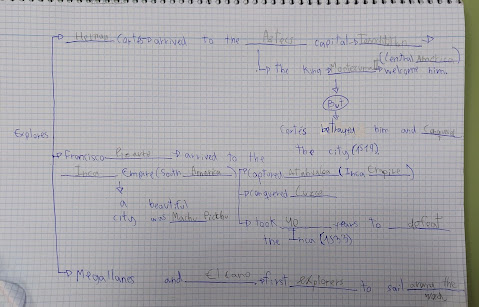 Hernan Cortés → arrived to the Aztecs capital → 
(Central America)
↳ the King Moctezuma II welcome him.
But
Cortés betrayed him and
the city (1519)
Explores
Francisco Pizarro → arrived to the
Inca Empire (South America)
→ captured Atahualpa (Inca Empire)
→ conquered Cuzco
a beautiful
city was Machu Picchu
→ took 40 years to defeat
the Inca (1533)
→ Magallanes and Elcano → first explorers to sail around the